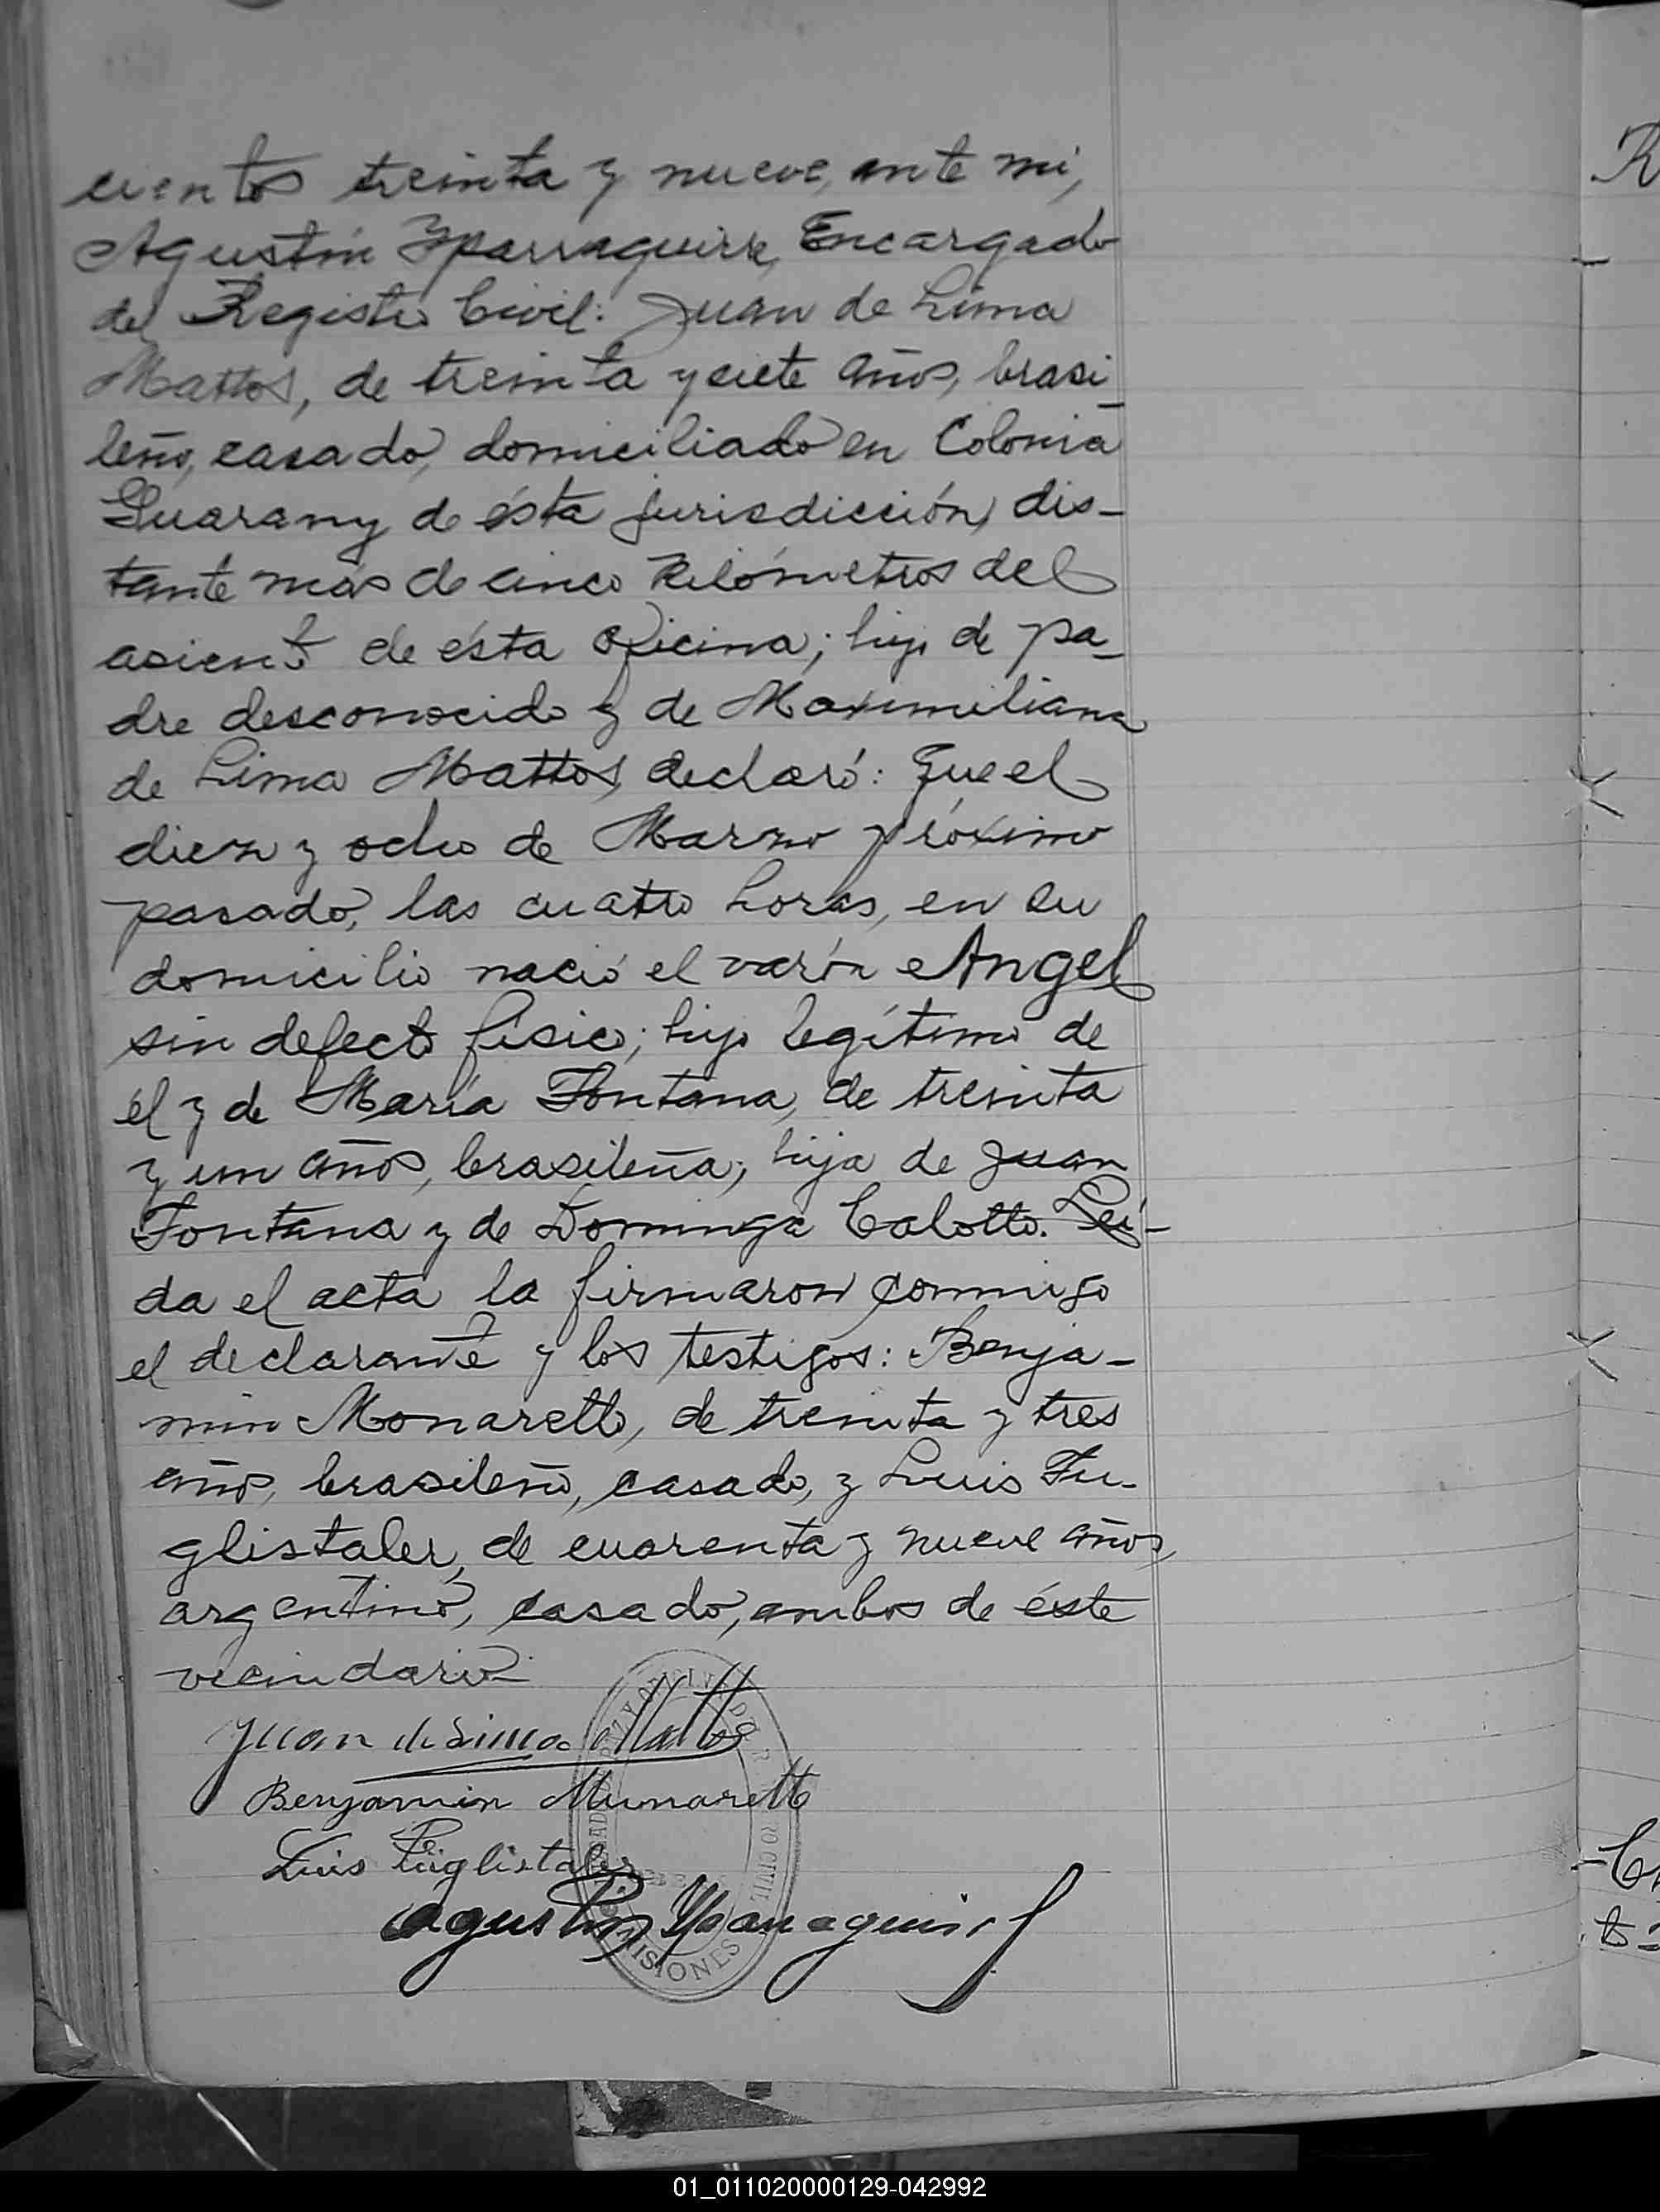 cientos treinta y nueve, ante mí,
Agustín Yparraguirre, Encargado
del Registro Civil: Juan de Lima
Mattos, de treinta y siete años, brasi_
leño, casado, domiciliado en Colonia
Guarany de ésta jurisdicción, dis-
tante más de cinco Kilómetros del
asiento de ésta Oficina; hijo de pa_
dre desconocido y de Maximiliana
de Lima Mattos, declaró: Que el
diez y ocho de Marzo próximo
pasado, las cuatro horas, en su
domicilio nació el varón Angel
sin defecto físico; hijo legítimo de
él y de María Fontana, de treinta
y un años, brasileña; hija de Juan
Fontana y de Dominga Calotto. Leí-
da el acta la firmaron conmigo
el declarante y los testigos: Benja-
min Monaretto, de treinta y tres
años, brasileño, casado, y Luis Fu-
glistaler, de cuarenta y nueve años,
argentino, casado, ambos de éste
vecindario.-
Juan de Lima Mattos
Benjamin Munaretto
Luis Füglistaler
Agustín Yparraguirre
REGISTRO CIVIL
MISIONES
R
01_011020000129-042992